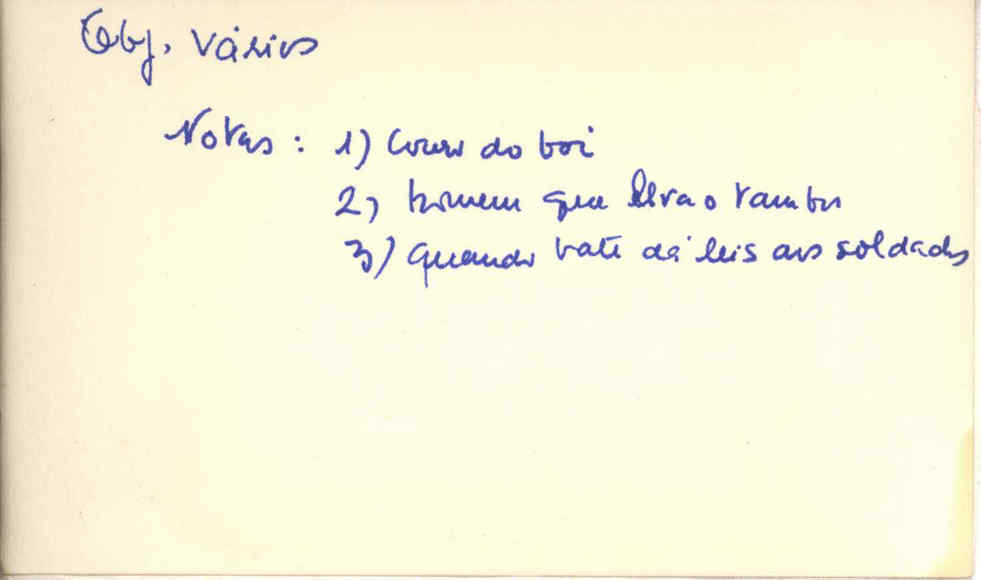 Obj. vários
Notas: 1) Couro do boi
2) homem que leva o tambor
3) Quando bate dá leis aos soldados